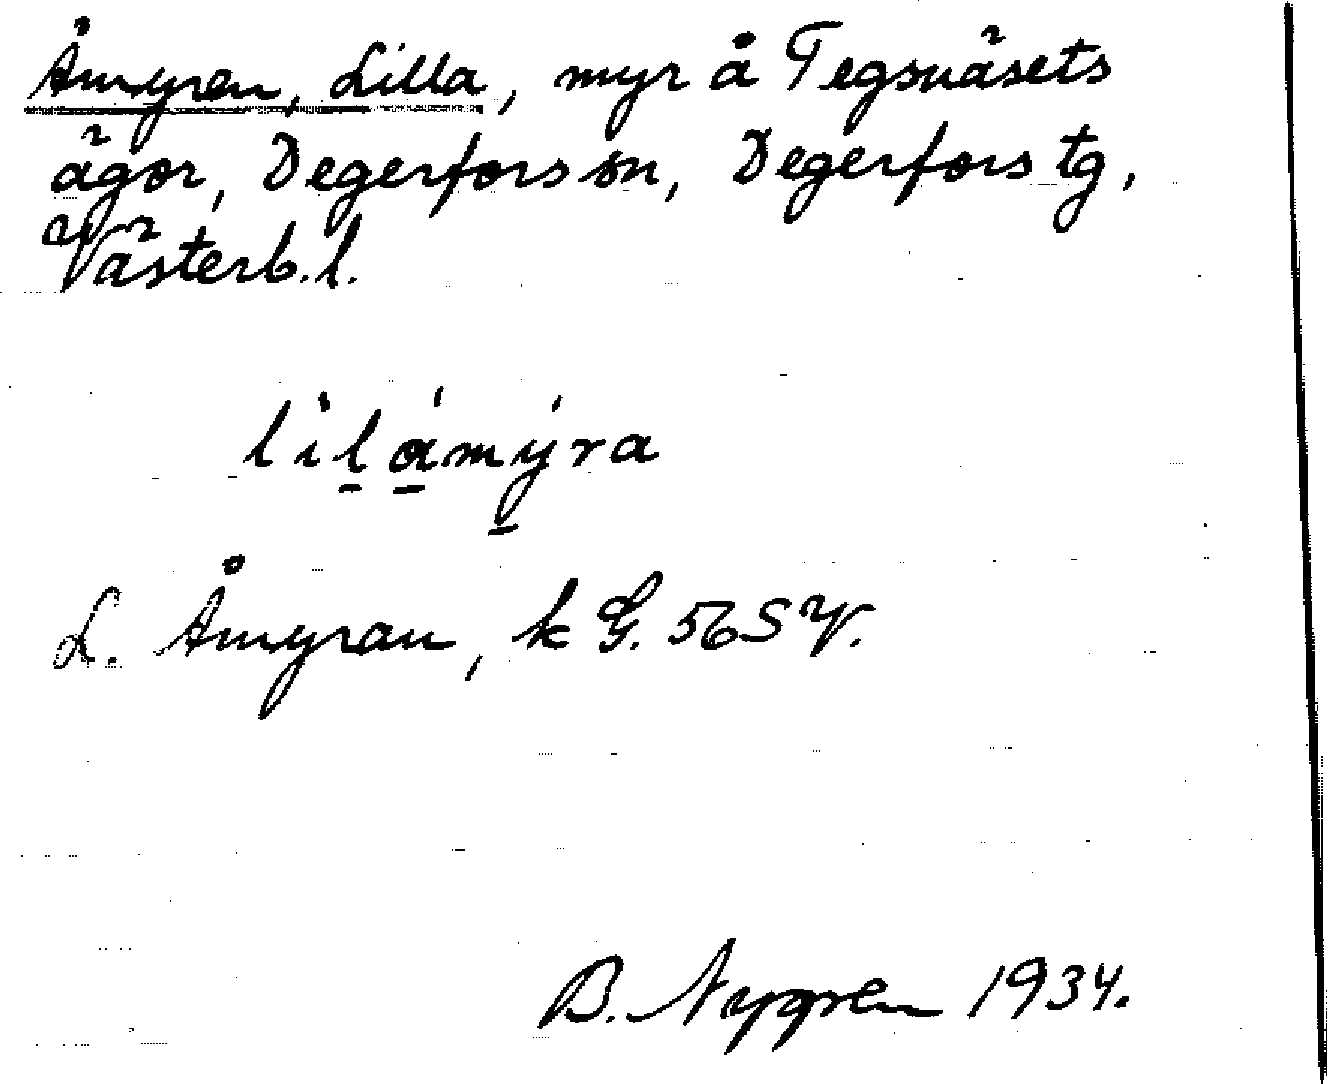 Åmyren, Lilla, myr å Tegsnäsets
ägor, Degerfors sn, Degerfors tg,
Västerb. l.
lìlámýra
L. Åmyran, k G. 56 S V.
B. Nygren 1934.